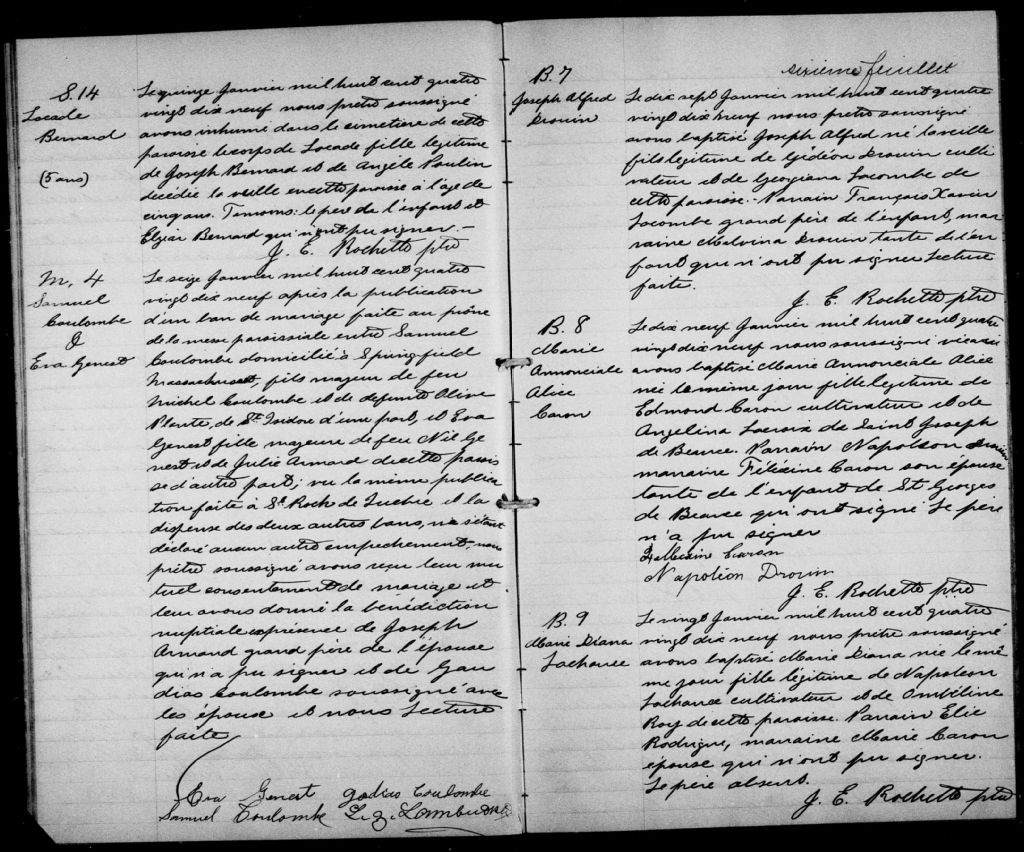 S. 14
Locade
Bernard
(5 ans)
Le quinze Janvier mil huit cent quatre
vingt dix neuf nous prêtre soussigné
avons inhumé dans le cimetière de cette
paroisse le corps de Locade fille légitime
de Joseph Bernard et de Angèle Poulin
décédée la veille en cette paroisse à l'âge de
cinq ans. Témoins: le père de l'enfant et
Elzéar Bernard qui n'ont pu signer.-
J. E. Rochette ptre
M. 4
Samuel
Coulombe
&
Eva Genest
Le seize Janvier mil huit cent quatre
vingt dix neuf après la publication
d'un ban de mariage faite au prône
de la messe paroissiale entre Samuel
Coulombe domicilié à Springfield
Massachusset, fils majeur de feu
Michel Coulombe et de defunte Olive
Plante, de St Isidore d'une part, et Eva
Genest fille majeure de feu Nil Ge
nest et de Julie Amard de cette parois
se d'autre part; vu la même publica
tion faite à St Roch de Quebec et la
dispense des deux autres bans, ne s'étant
déclaré aucun autre empechement, nous
prêtre soussigné avons reçu leur mu
tuel consentement de mariage et
leur avons donné la bénédiction
nuptiale en présence de Joseph
Amand grand père de l'épouse
qui n'a pu signer et de Gau
dias Coulombe soussigné avec
les épouse et nous Lecture
faite
Eva Genest Gadias Coulombe
Samuel Coulombe
sixième feuillet
B. 7
Joseph Alfred
Drouin
Le dix sept Janvier mil huit cent quatre
vingt dix neuf nous prêtre soussigné
avons baptisé Joseph Alfred né la veille
fils légitime de Gédéon Drouin culti
vateur et de Georgiana Jocombe de
cette paroisse.- Parrain François Xavier
Jocombe grand père de l'enfant, mar
raine Malvina Drouin tante de l'en
fant qui n'ont pu signer Lecture
faite.
J. E. Rochette ptre
B. 8
Marie
Annonciale
Alice
Caron
Le dix neuf Janvier mil huit cent quatre
vingt dix neuf nous soussigné vicaire
avons baptisé Marie Annonciale Alice
née le même jour fille légitime de
Edmond Caron cultivateur et de
Angelina Lacroix de Saint Joseph
de Beauce. Parrain Napoléon Drouin
marraine Félixine Caron son épouse
tante de l'enfant de St Georges
de Beauce qui ont signé Le père
n'a pu signer
Caron
Napoléon Drouin
J. E. Rochette ptre
B. 9
Marie Diana
Lachance
Le vingt Janvier mil huit cent quatre
vingt dix neuf nous prêtre soussigné
avons baptisé Marie Diana née le mê
me jour fille légitime de Napoléon
Lachance cultivateur et de Ombéline
Roy de cette paroisse. Parrain Elie
Rodrigue, marraine Marie Caron
épouse qui n'ont pu signer.
Le père absent.
J. E. Rochette ptre